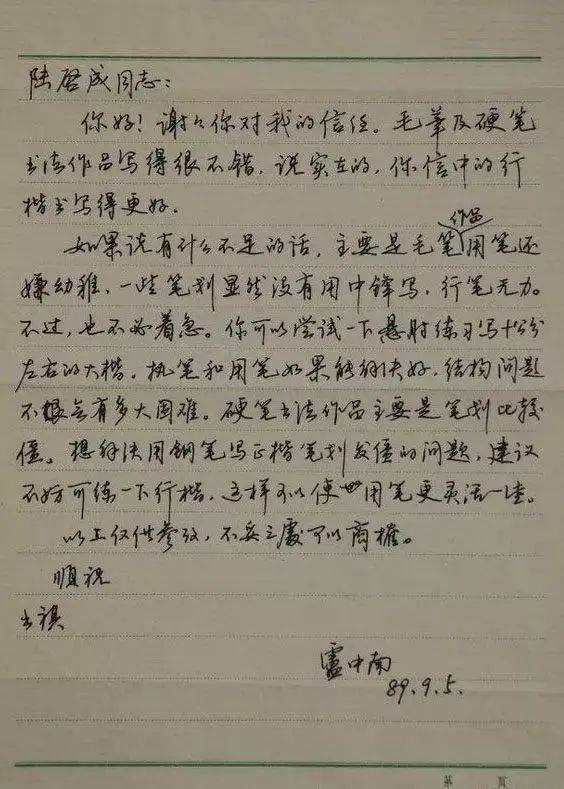 陆啓成同志：
你好！谢谢你对我的信任。毛筆及硬笔
书法作品写得很不错，说实在的，你信中的行
楷书写得更好。
作品
如果说有什么不足的话，主要是毛笔用笔还
嫌幼稚，一些笔划显然没有用中锋写，行笔无力。
不过，也不必着急。你可以尝试一下悬肘练习写十公分
左右的大楷，执笔和用笔如果能解决好，结构问题
不会有多大困难。硬笔书法作品主要是笔划比较
僵。想解决用钢笔写正楷笔划发僵的问题，建议
不妨可练一下行楷，这样可以使用笔更灵活一些。
以上仅供参攷，不妥之處可以商榷。
顺祝
书祺
盧中南
89.9.5.
第 頁